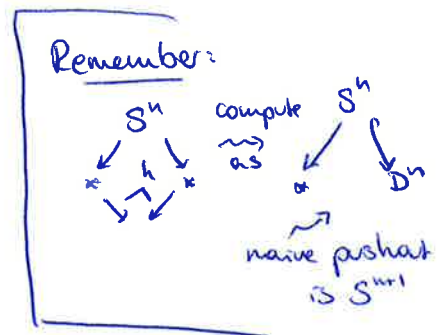 Remember:
Sⁿ compute Sⁿ
* h * as * Dⁿ
naive pushout
is Sⁿ⁺¹